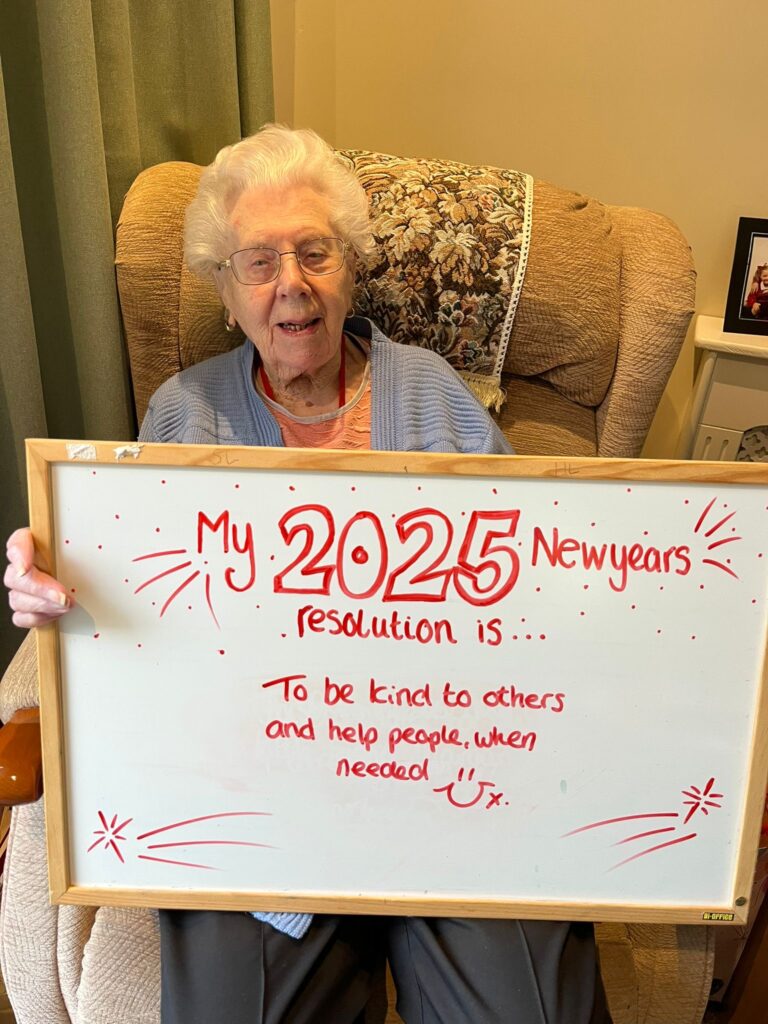 My 2025 Newyears
resolution is...
To be kind to others
and help people, when
needed x.
BI-OFFICE